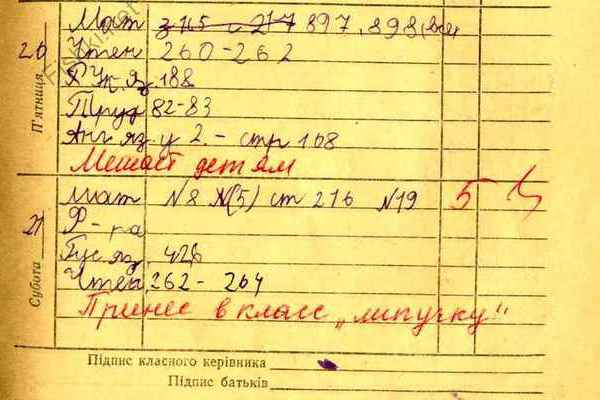 Мат 897, 898 (все)
20 Чтен 260-262
Рук. яз. 188
П'ятниця
Труд 82-83
Анг яз. у 2. - стр 168
Мешает детям
Мат N8 N(5) ст 216 N19 5
21 Ф-ра
Рус яз 426
Субота
Чтен 262- 264
Принес в класс „липучку"
Підпис класного керівника
Підпис батьків